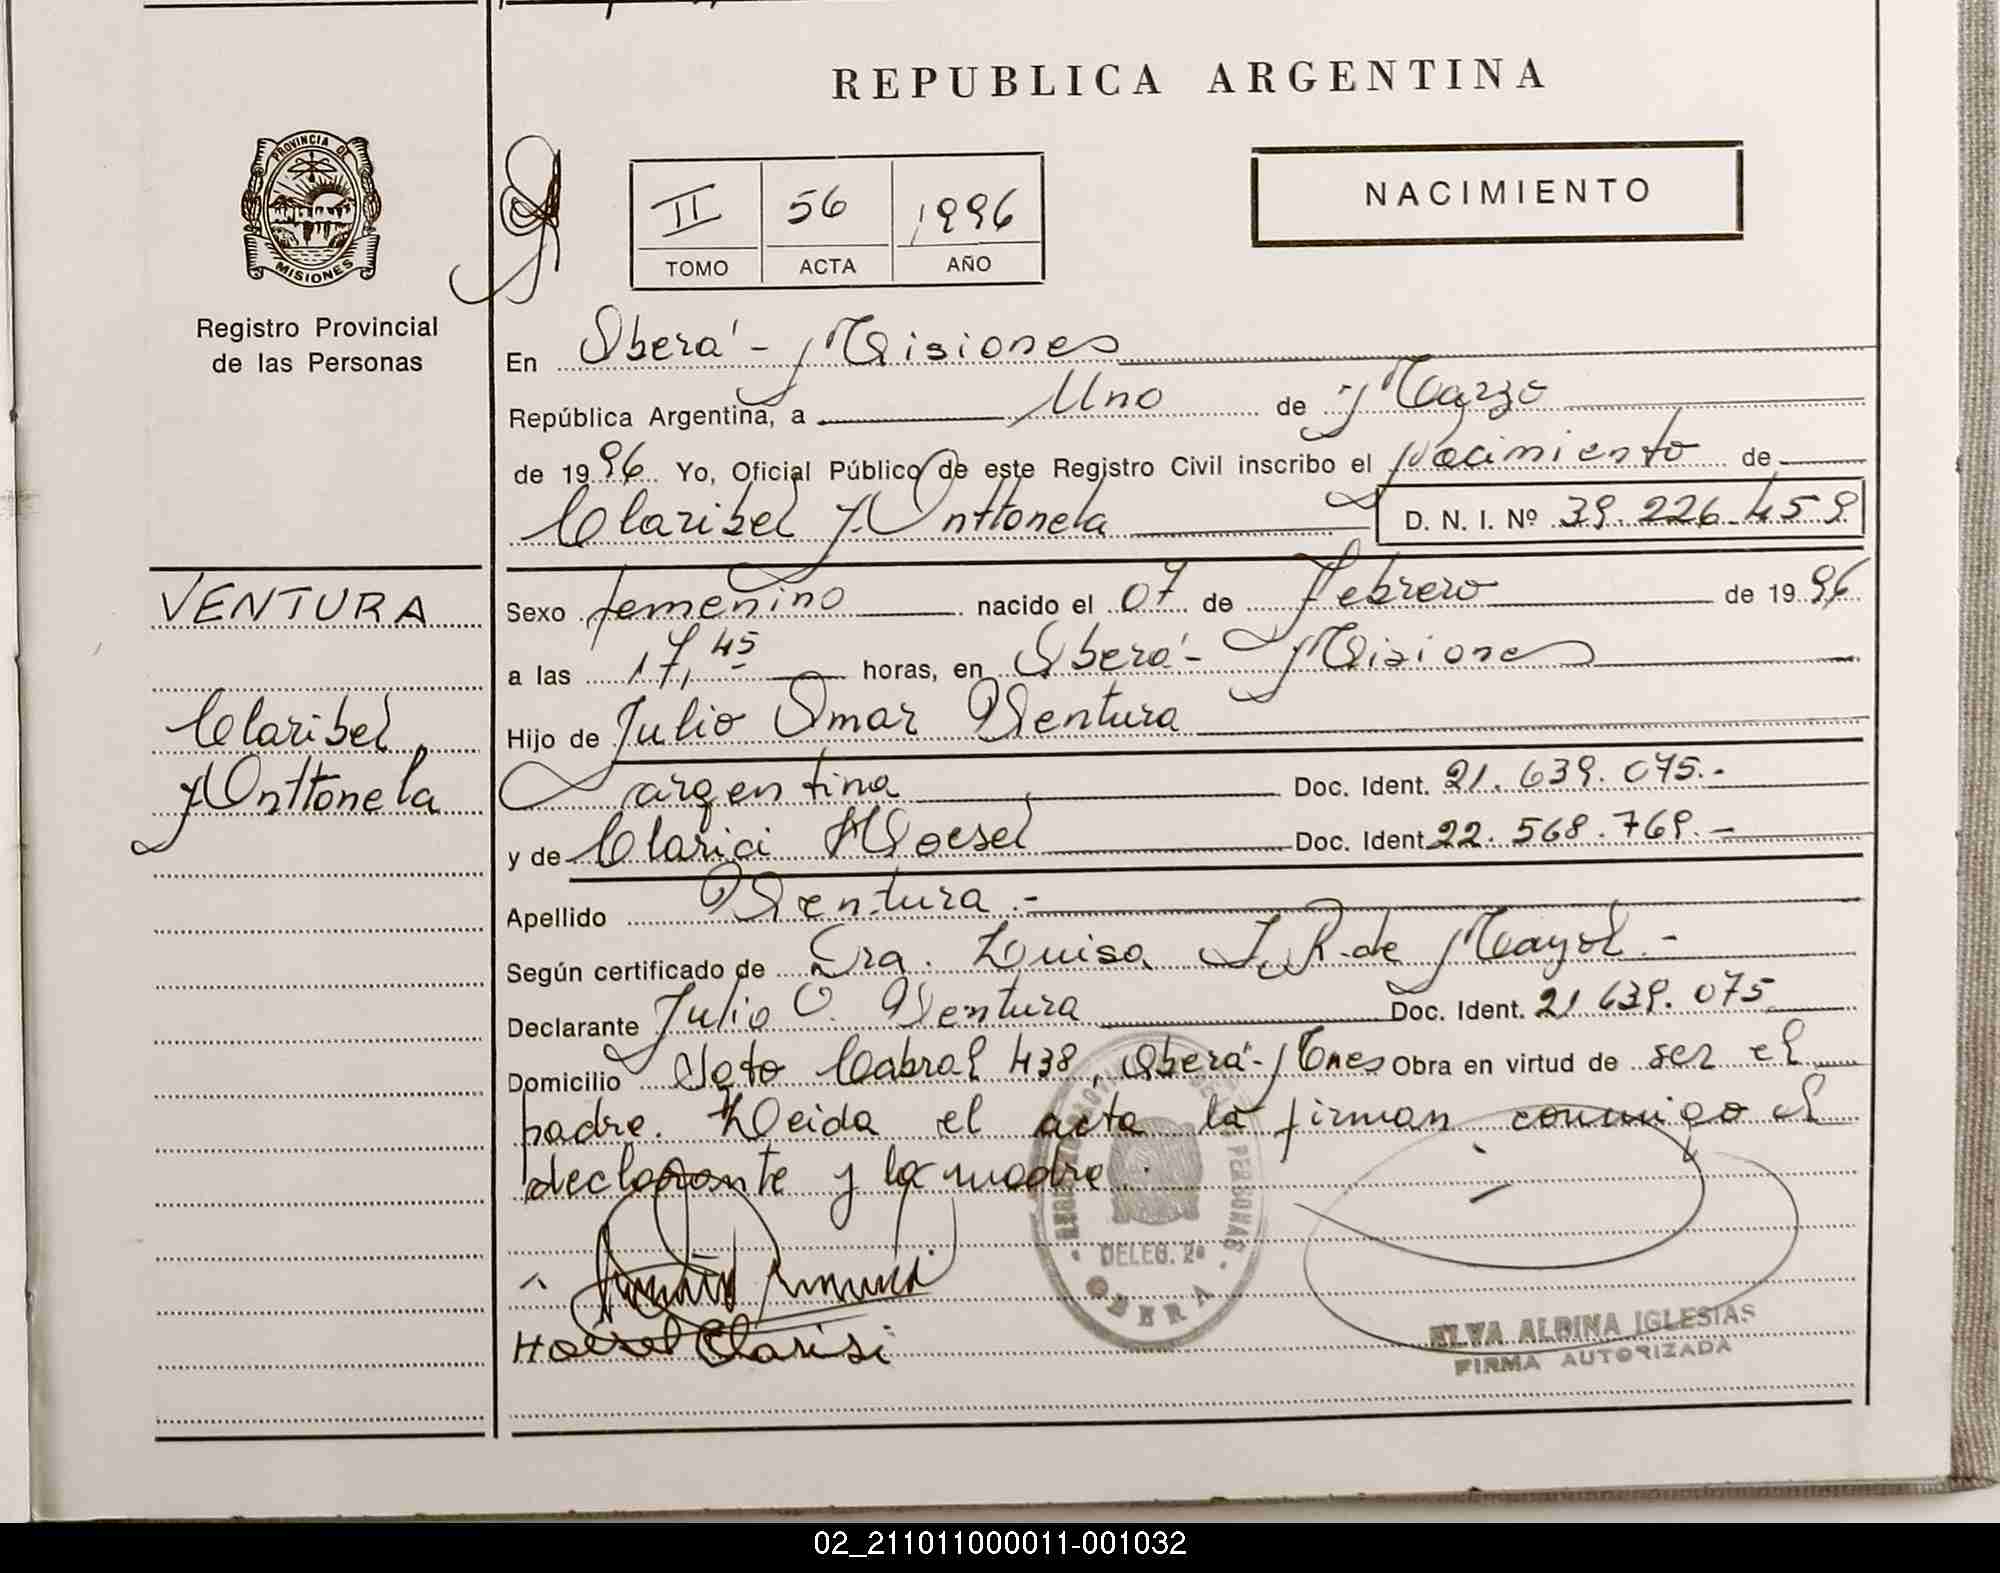 REPUBLICA ARGENTINA
PROVINCIA DE
MISIONES
Registro Provincial
de las Personas
II 56 1996
TOMO ACTA AÑO
NACIMIENTO
En Oberá - Misiones
República Argentina, a Uno de Marzo
de 1996 Yo, Oficial Público de este Registro Civil inscribo el Nacimiento de
Claribel Anttonela D. N. I. Nº 39.226.459
VENTURA
Claribel
Anttonela
Sexo femenino nacido el 07 de Febrero de 1996
a las 17,45 horas, en Oberá - Misiones
Hijo de Julio Omar Ventura
argentina Doc. Ident. 21.639.075.-
y de Clarici Hoesel Doc. Ident. 22.568.769.-
Apellido Ventura.-
Según certificado de Dra. Luisa J. R. de Mayol.-
Declarante Julio O. Ventura Doc. Ident. 21 639.075
Domicilio Sgto Cabral 438, Oberá - Mnes Obra en virtud de ser el
padre. Leida el acta la firman conmigo el
declarante y la madre.
DE LAS PERSONAS
DELEG. 2ª
OBERA
Hoesel Clarisi
ELVA ALBINA IGLESIAS
FIRMA AUTORIZADA
02_211011000011-001032